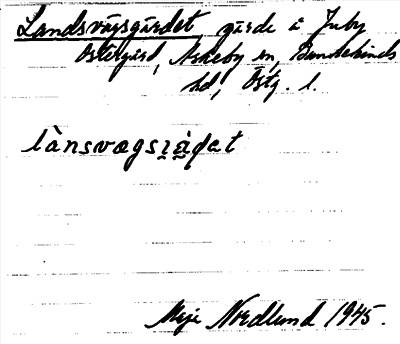 Landsvägsgärdet, gärde å Juby
Östergård, Askeby sn, Bankekinds
hd, Östg. l.
lànsvægsjạ̈ḍet
Meje Nordlund 1945.